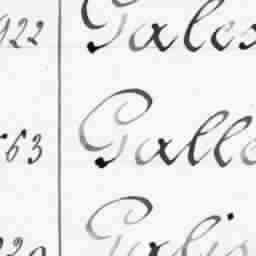 922 Gales
563 Galle
Galis